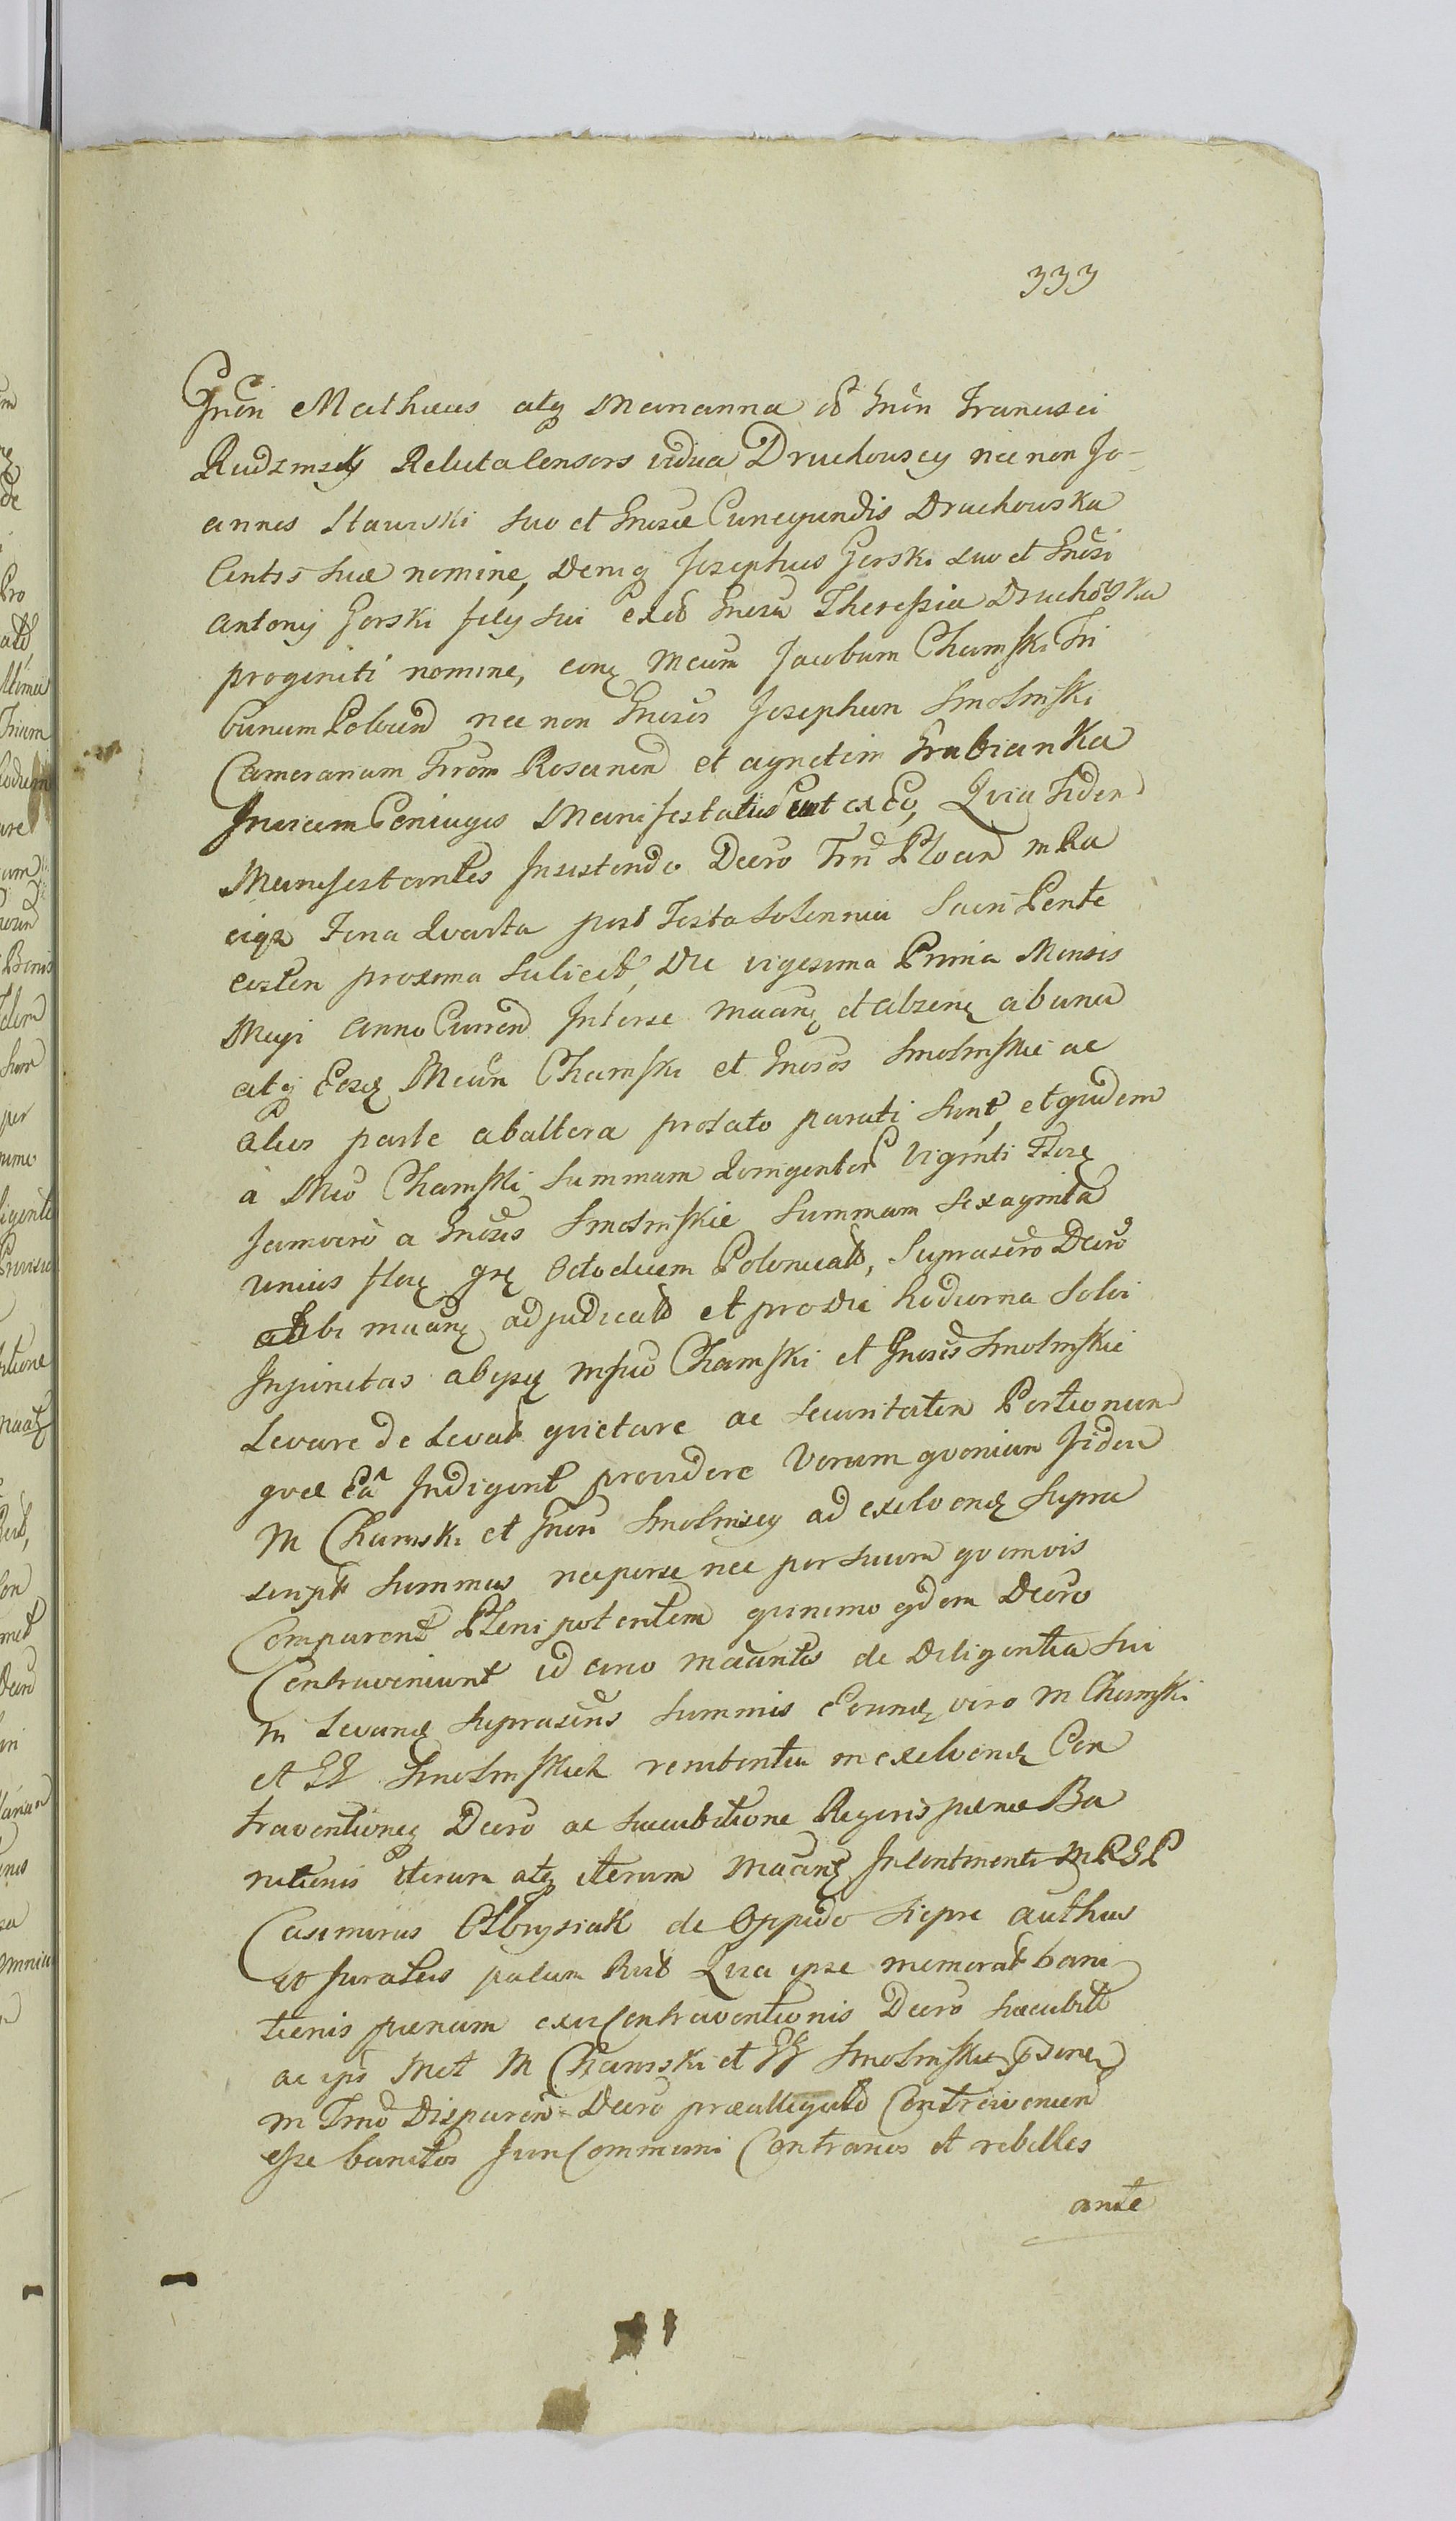 333
Gnōn Mathæus atq Marianna oō Gnōn Francisci
Rudzinsky Relicta Consors vidua Druchowscy nec non Jo-
annes Stawiski suo et Gnosæ Cunegundis Druchowska
Contis suæ nomine, deniq Josephus Gorski suo et Gnōsi
Antonij Gorski filij sui ex oō Gnosa Theressia Druchowska
progeniti nomine, conq Mcum Jacobum Chamski Tri
bunum Plocen nec non Gnosos Josephum Smolinski
Camerarium Trrōm Rosanen et Agnetim Grabianka
Invicem Coniuges Manifestatus est ex Eo, Quia Iidem
Manifestantes Insistendo Decro Trrī Plocen in Ra
ciąz Feria Quarta post Festa Solennia Sacri Pente
costen proxima Scilicet, Die vigesima Prima Mensis
Maji Anno Curren Interse maanq et absenq ab una
atq Eosq Mcūm Chamski et Gnosos Smolinskie ac
alios parte ab altera prolato parati sunt, et quidem
à Mco Chamski Summam Quingentor Viginti Flerq
Jamvero a Gnosis Smolinskie Summam Sexaginta
unius flerq grq Octodecim Polonicalt, Suprascro Decro
sibi maanq adjudicatt et pro Die hodierna Solvi
Injunctas ab ipsq Mfico Chamski et Gnosis Smolinskie
Levare de Levatt quietare ac securitatem Portionum
quæ Eā Indigent providere Verum quoniam Iidem
M Chamski et Gnōn Smolinscy ad exolvenq supra
scriptt summas nec per se nec per suum quemvis
Comparent Plenipotentem quinimo eidem Decro
Contraveniunt id circo maantes de Diligentia sui
in Levanq suprascris summis Eorumq viro M Chamski
et GG Smolinskich renitentia in exolvenq Con
traventioneq Decro ac succubitione Rigoris pænæ Ba
nitionis iterum atq iterum maanq Incontinenti
Casimirus Olbrysiak de Oppido Siepre authus
et juratus palam Rect Quia ipse memorat bani
tionis pænam ex contraventionis Decro succubitt
ac ipos Met M Chamski et GG Smolinskie
in Tmno Disparen Decro præallegatt Contravenien
esse banitos Juri Communi Contrarios et rebelles
ante